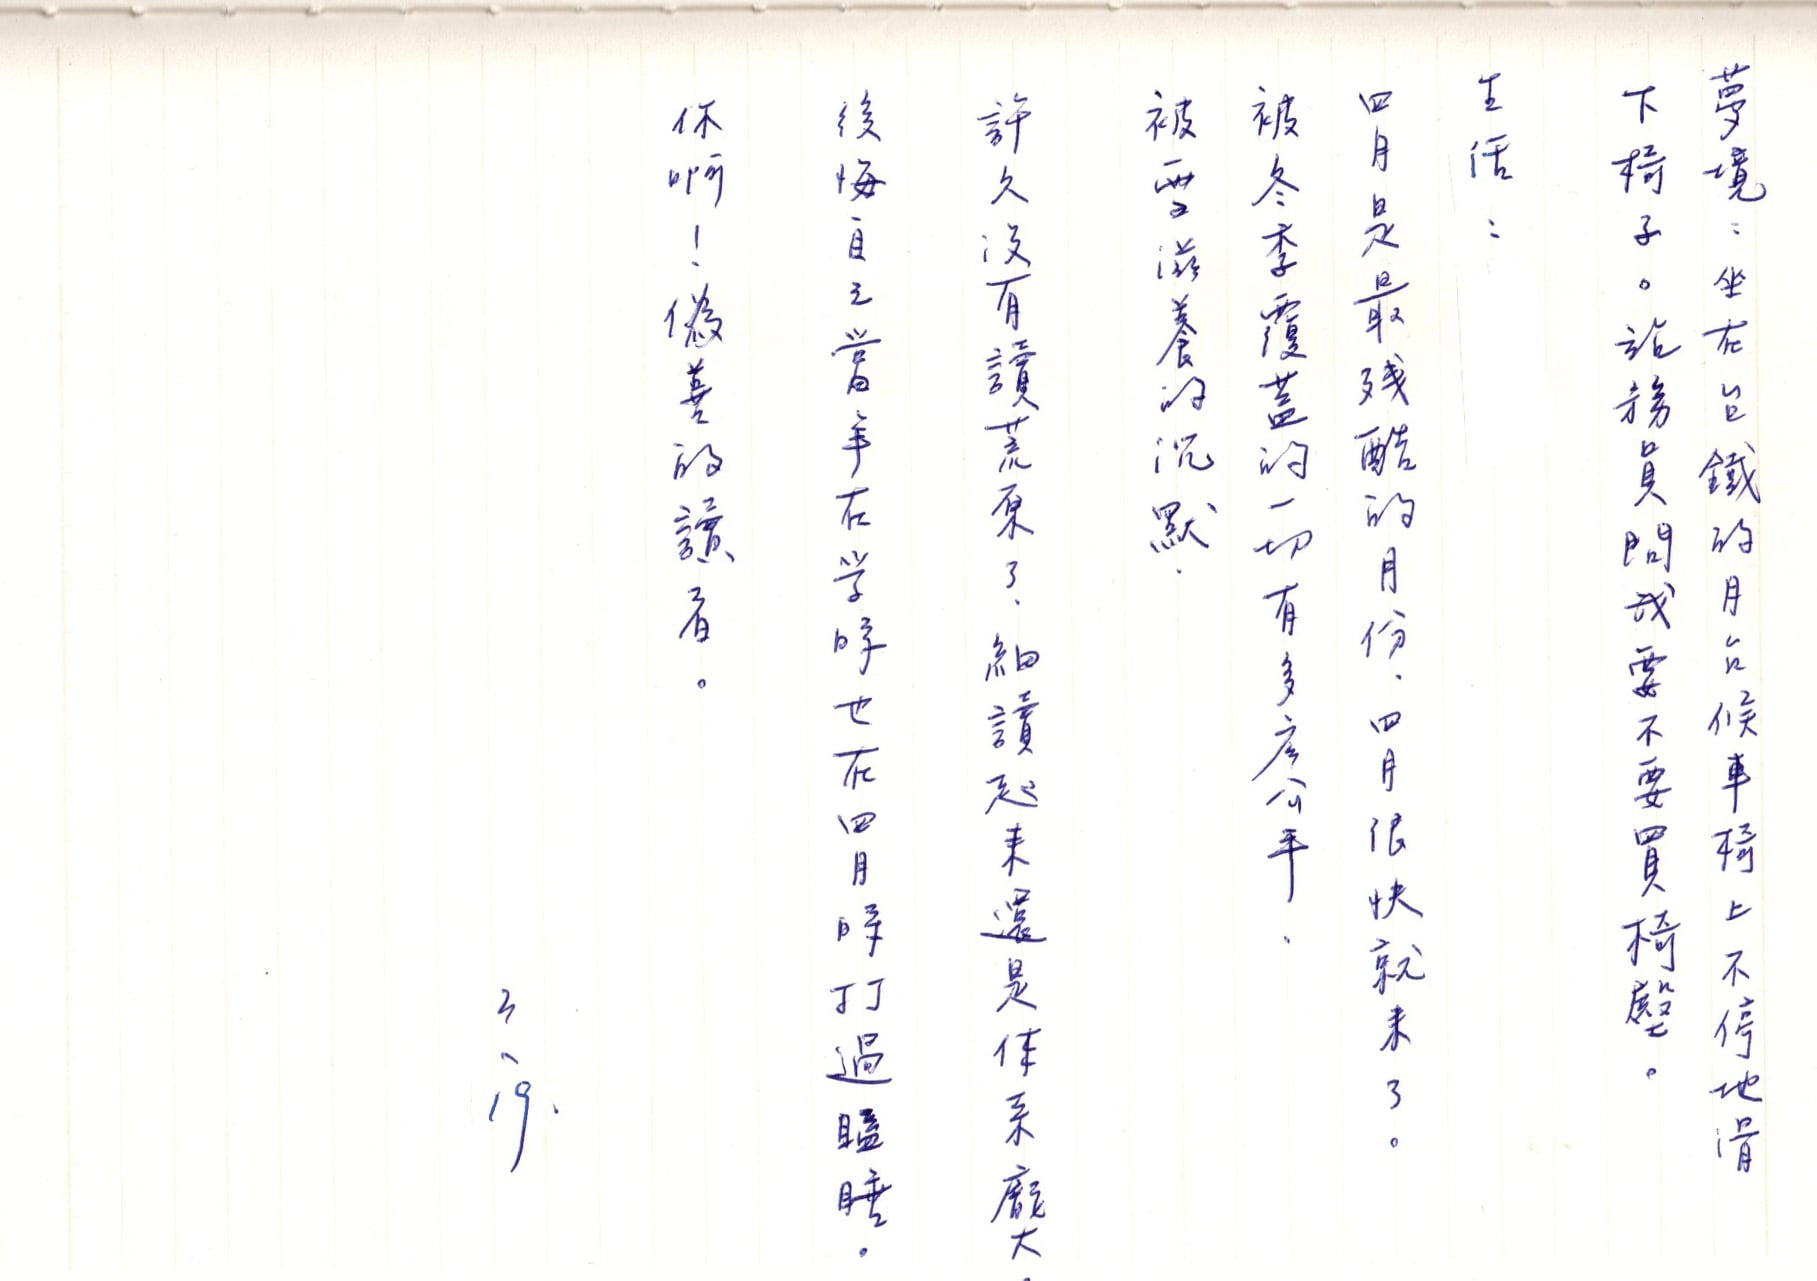 夢境：坐在台鐵的月台候車椅上不停地滑
下椅子。站務員問我要不要買椅墊。
生活：
四月是最殘酷的月份、四月很快就來了。
被冬季覆蓋的一切有多麼公平、
被雪滋養的沉默、
許久沒有讀荒原了、細讀起來還是体系龐大。
後悔自己當年在学時也在四月時打過瞌睡。
你啊！偽善的讀者。
3、19、